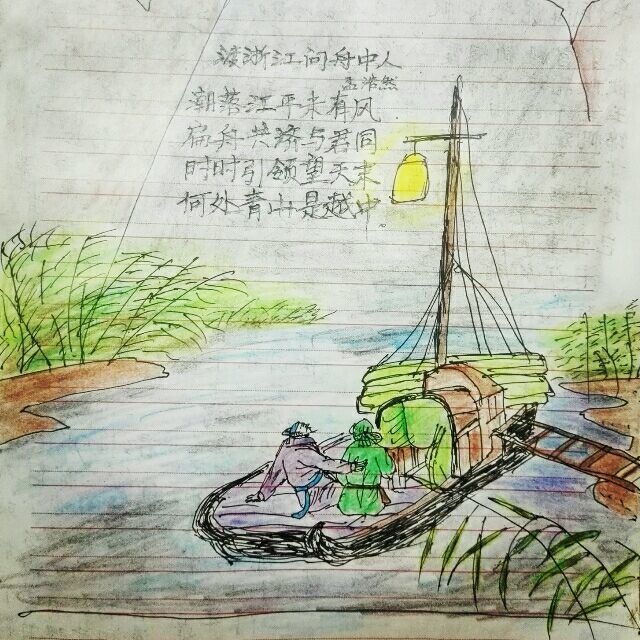 渡浙江问舟中人
孟浩然
潮落江平未有风
扁舟共济与君同
时时引领望天末
何处青山是越中